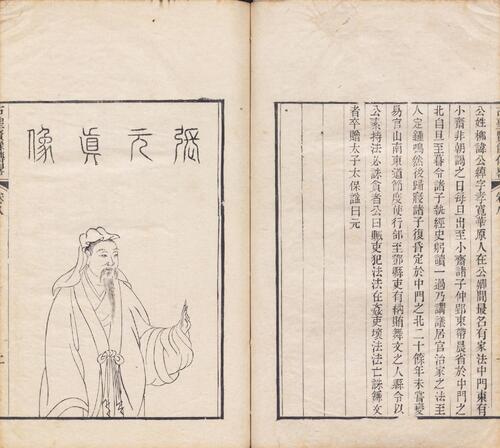 公姓柳諱公綽字孝寬華原人在公卿間最名有家法中門東有
小齋非朝謁之日每旦出至小齋諸子仲郢束帶晨省於中門之
北自旦至暮令諸子執經史躬讀一過乃講議居官治家之法至
人定鐘鳴然後歸寢諸子復昏定於中門之北二十餘年未嘗變
易官山南東道節度使行部至鄧縣吏有納賄舞文之人縣令以
公素持法必誅貪者公曰贓吏犯法法在姦吏壞法法亡誅舞文
者卒贈太子太保諡曰元
張元眞像
古聖賢像傳畧
卷八